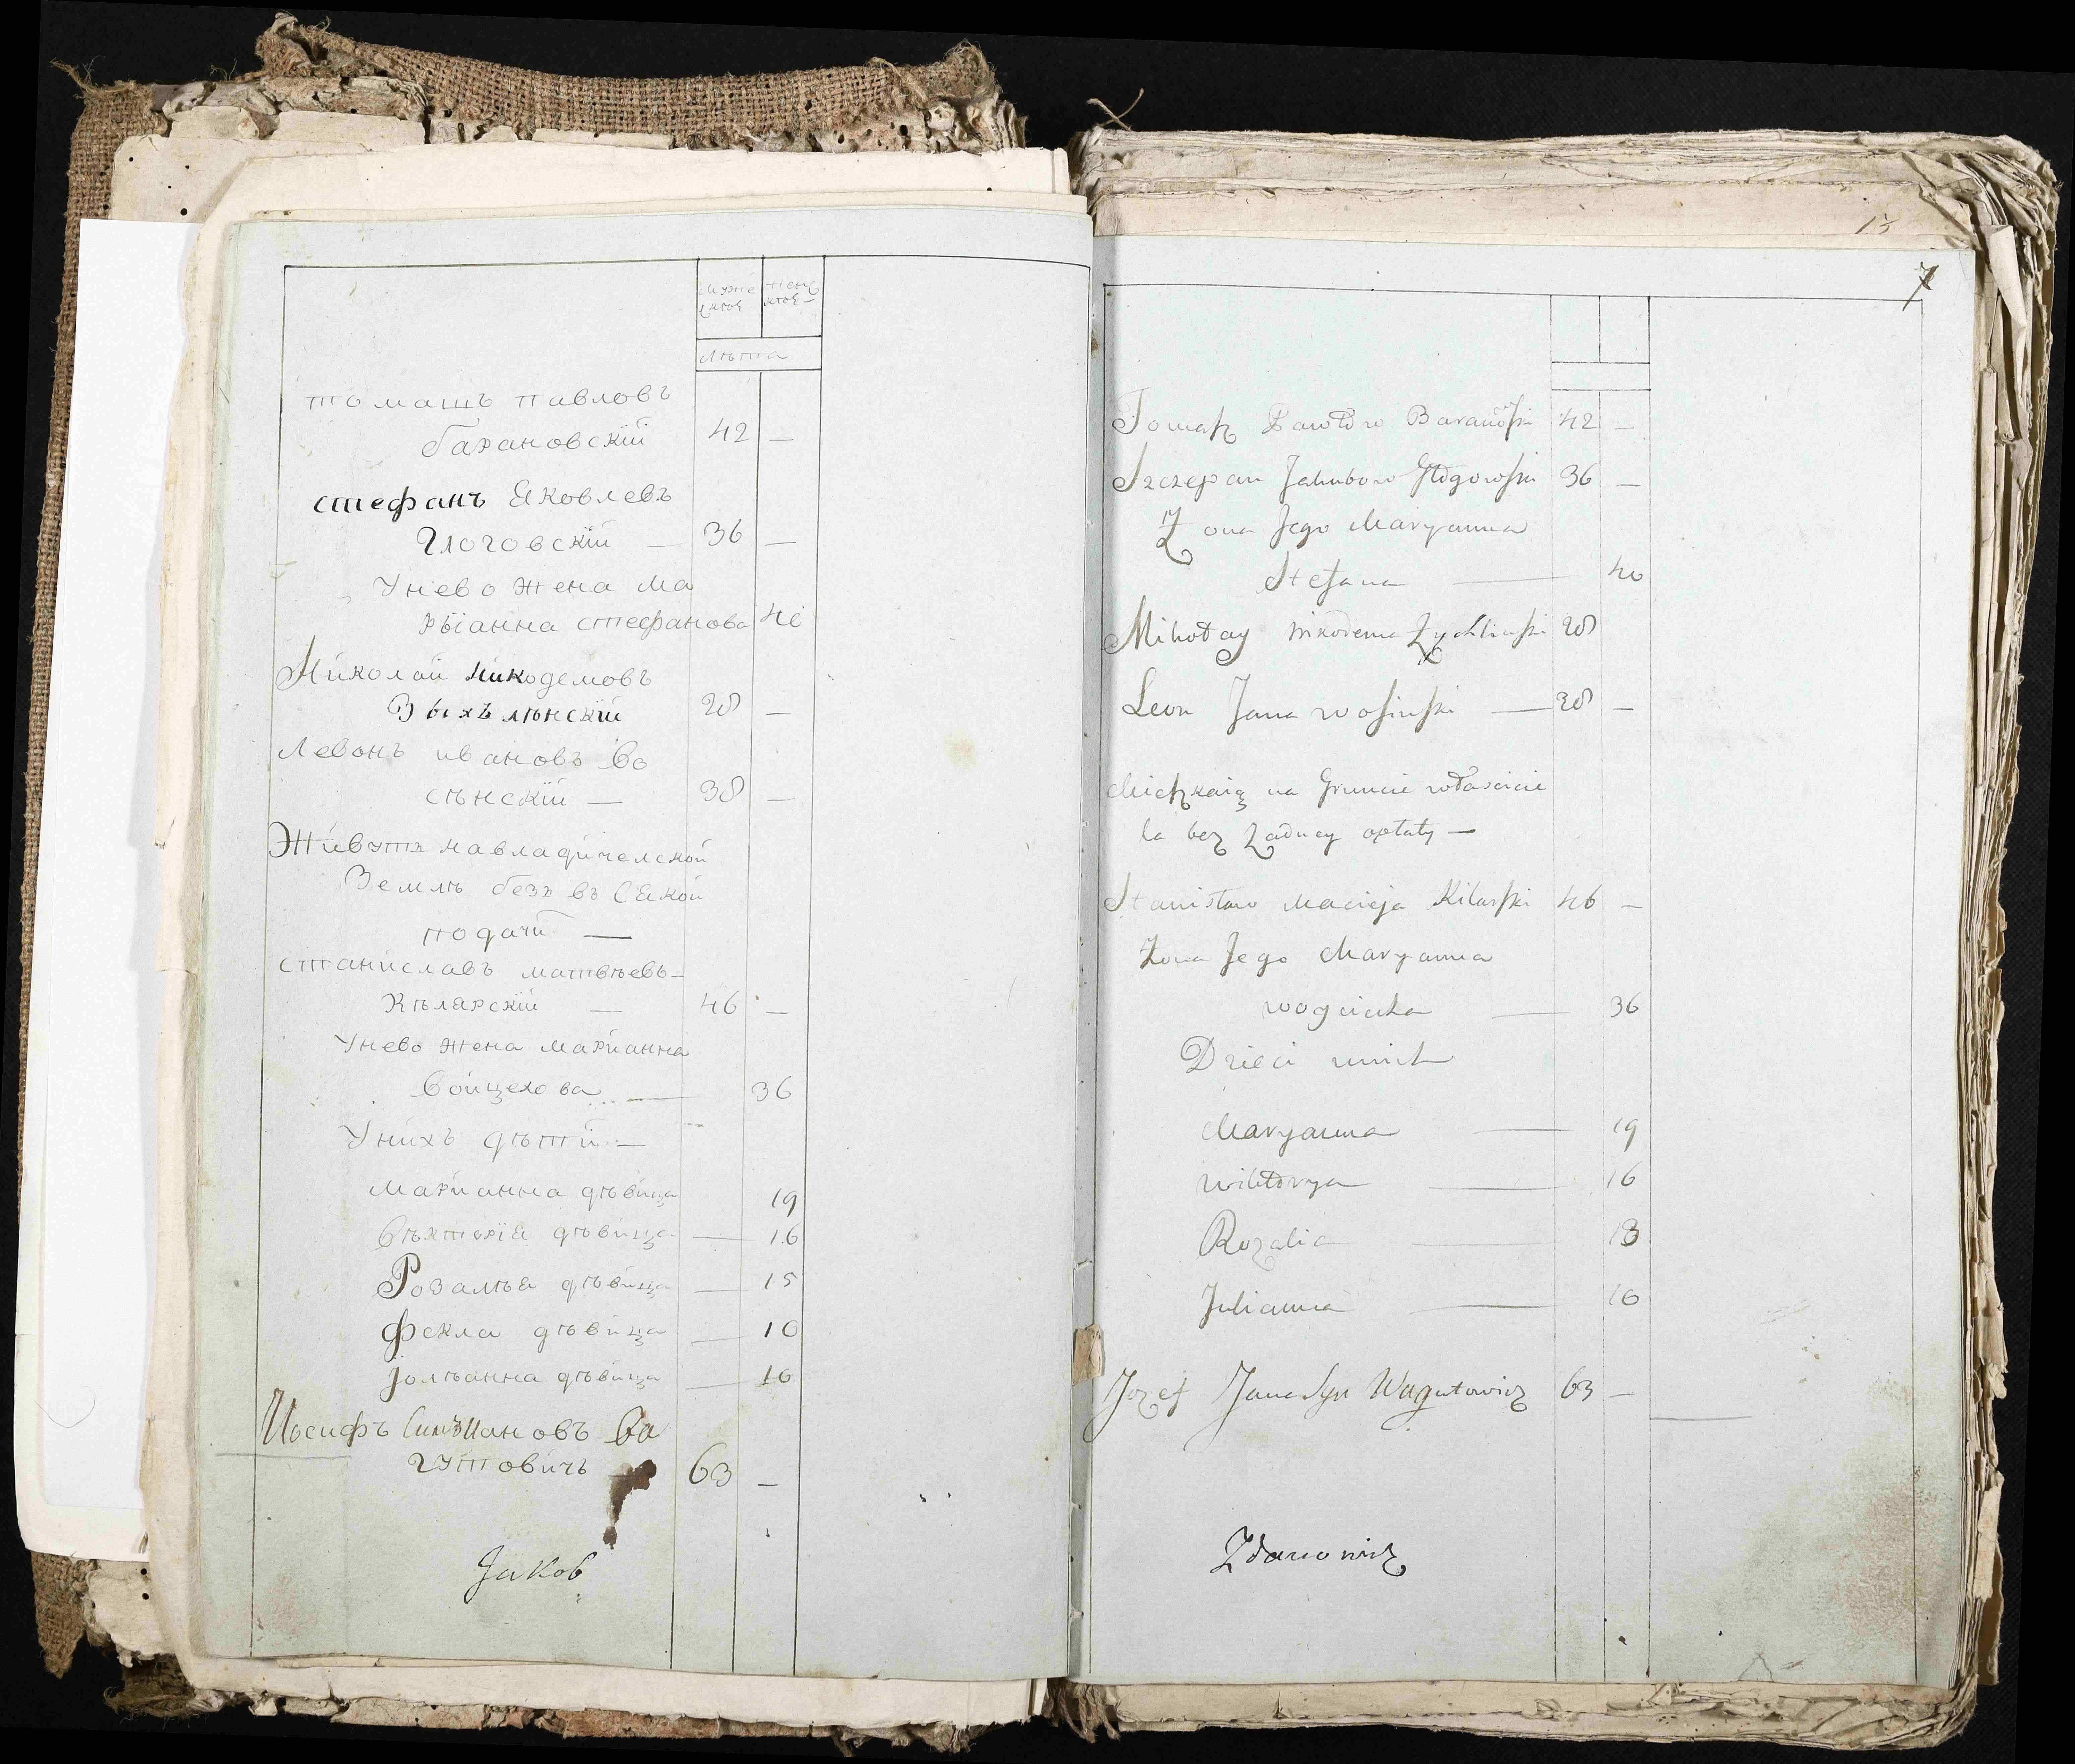 Муже
Женс
Лѣта
томашъ павловъ
барановскїй 42 —
стефанъ Яковлевъ
Глоговскїй — 36 —
Унево жена ма
рыанна стефанова 40
Николай никодемовъ
Зыхълѣнскїй 28 —
Левонъ ивановъ Во
сѣнскїй — 38 —
Живутъ навладичелской
Землѣ безъ въсякой
подачи —
станиславъ матвѣевъ —
Кѣлярскїй — 46 —
Унево жена марианна
войцехова — 36
Унихъ дѣти —
марианна дѣвица 19
вѣкторїя дѣвица — 16
Розалѣя дѣвица — 15
фекла дѣвица — 10
Jолѣанна дѣвица — 10
Иосифъ ... Ва
гутовичъ 63 —
Jakob
15
7
Tomasz Pawłow Baranowski 42 —
Szczepan Jakubow Głogowski 36 —
Zona Jego Maryanna
Stefana — 40
Mikołay nikodema Zychlinski 28
Leon Jana wosinski — 38 —
Mieszkaią na Gruncie własciciе
la bez Zadney opłaty —
Stanisław Macieja Kilarski 46 —
Zona Jego Maryanna
woyciecha — 36
Dzieci unich
Maryanna — 19
wiktorya — 16
Rozalia — 13
Julianna — 10
Jozef Jana Syn Wagutowicz 63 —
Zdanowicz